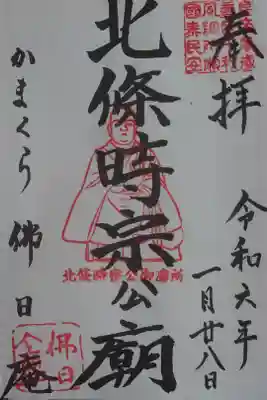 奉拝
令和六年
一月廿八日
北條時宗公廟
北條時宗公御廟所
かまくら 佛日庵
國泰民安
佛日